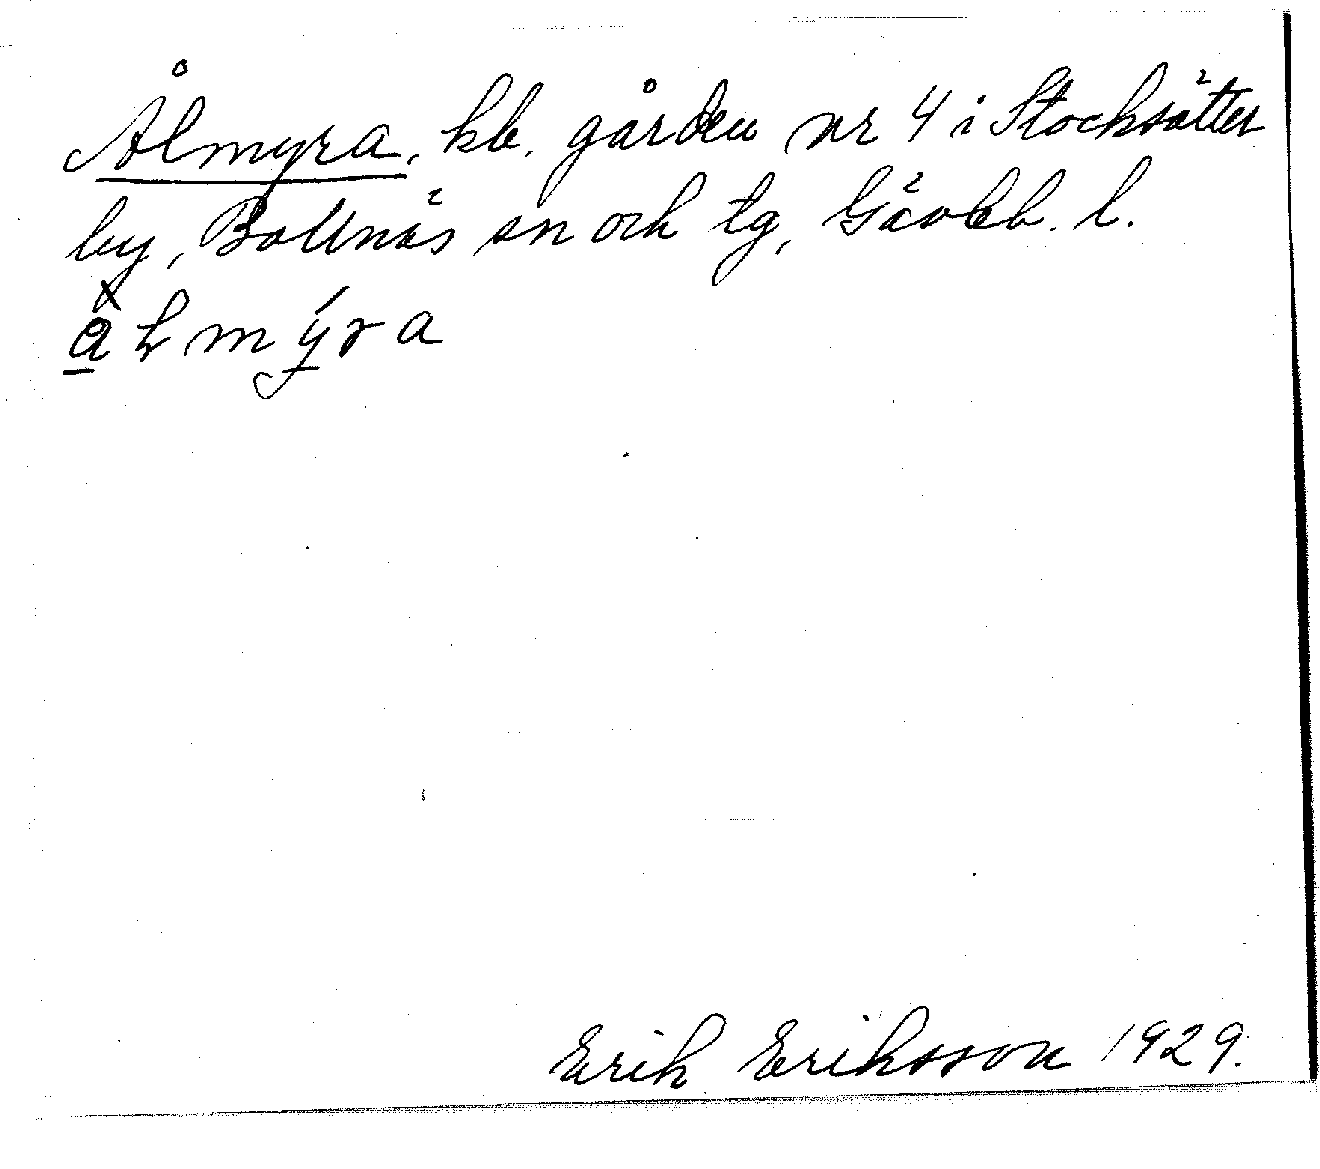 Ålmyra, kb. gården nr 4 i Stocksätter
by, Bollnäs sn och tg, Gävleb. l.
Erik Eriksson 1929.